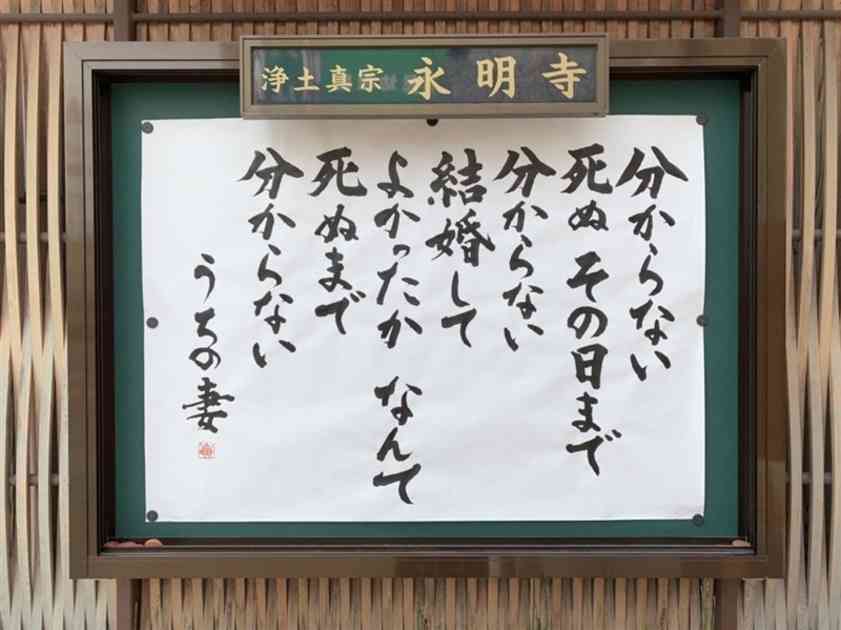 浄土真宗 永明寺
分からない
死ぬ その日まで
分からない
結婚して
よかったか なんて
死ぬまで
分からない
うちの妻